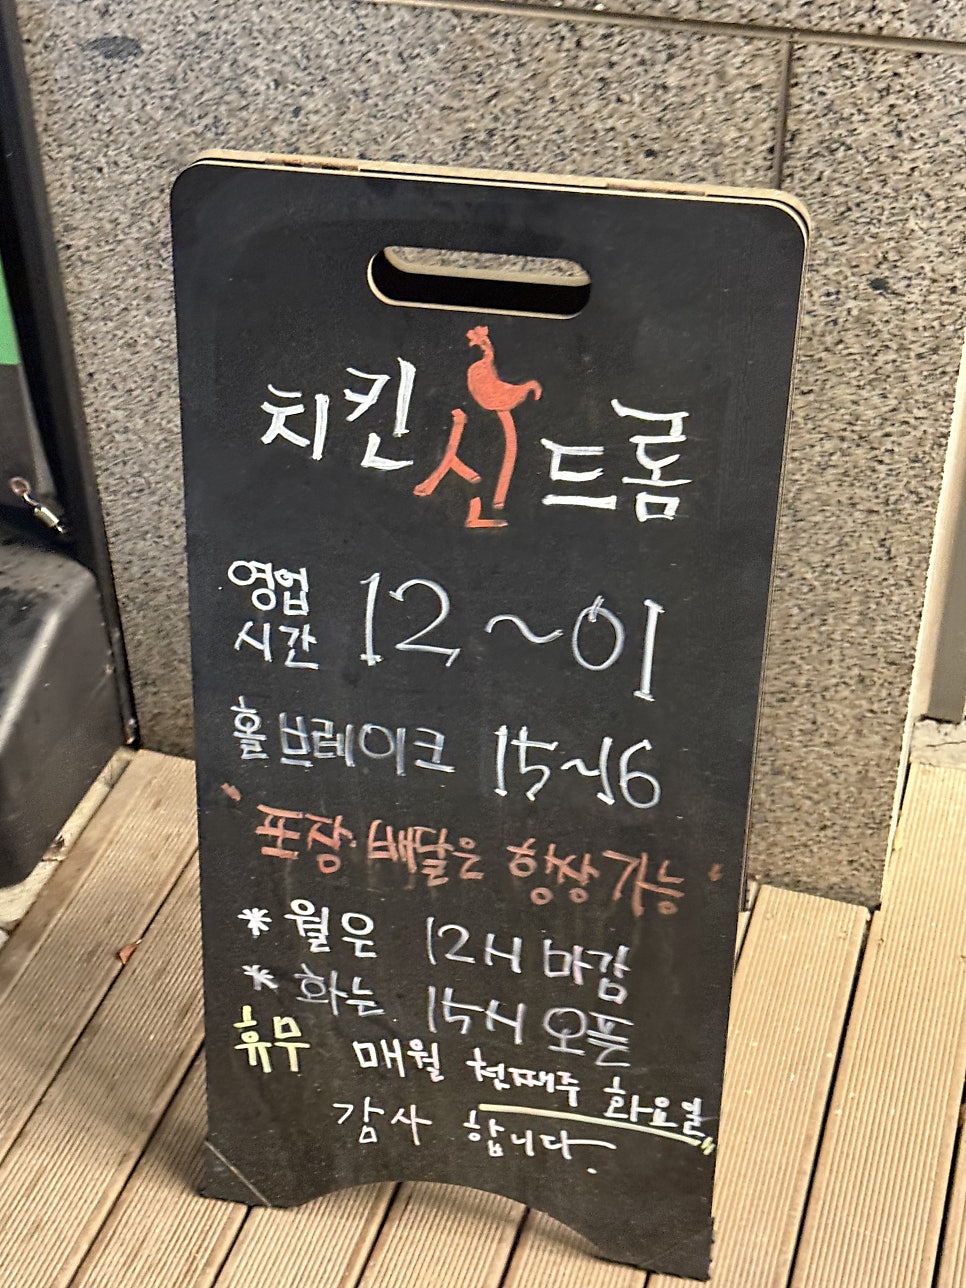 치킨신드롬
영업 시간 12~01
홀브레이크 15~16
"포장 배달은 항상 가능"
* 월은 12시 마감
* 화는 15시 오픈
휴무 매월 첫째주 화요일
감사 합니다.